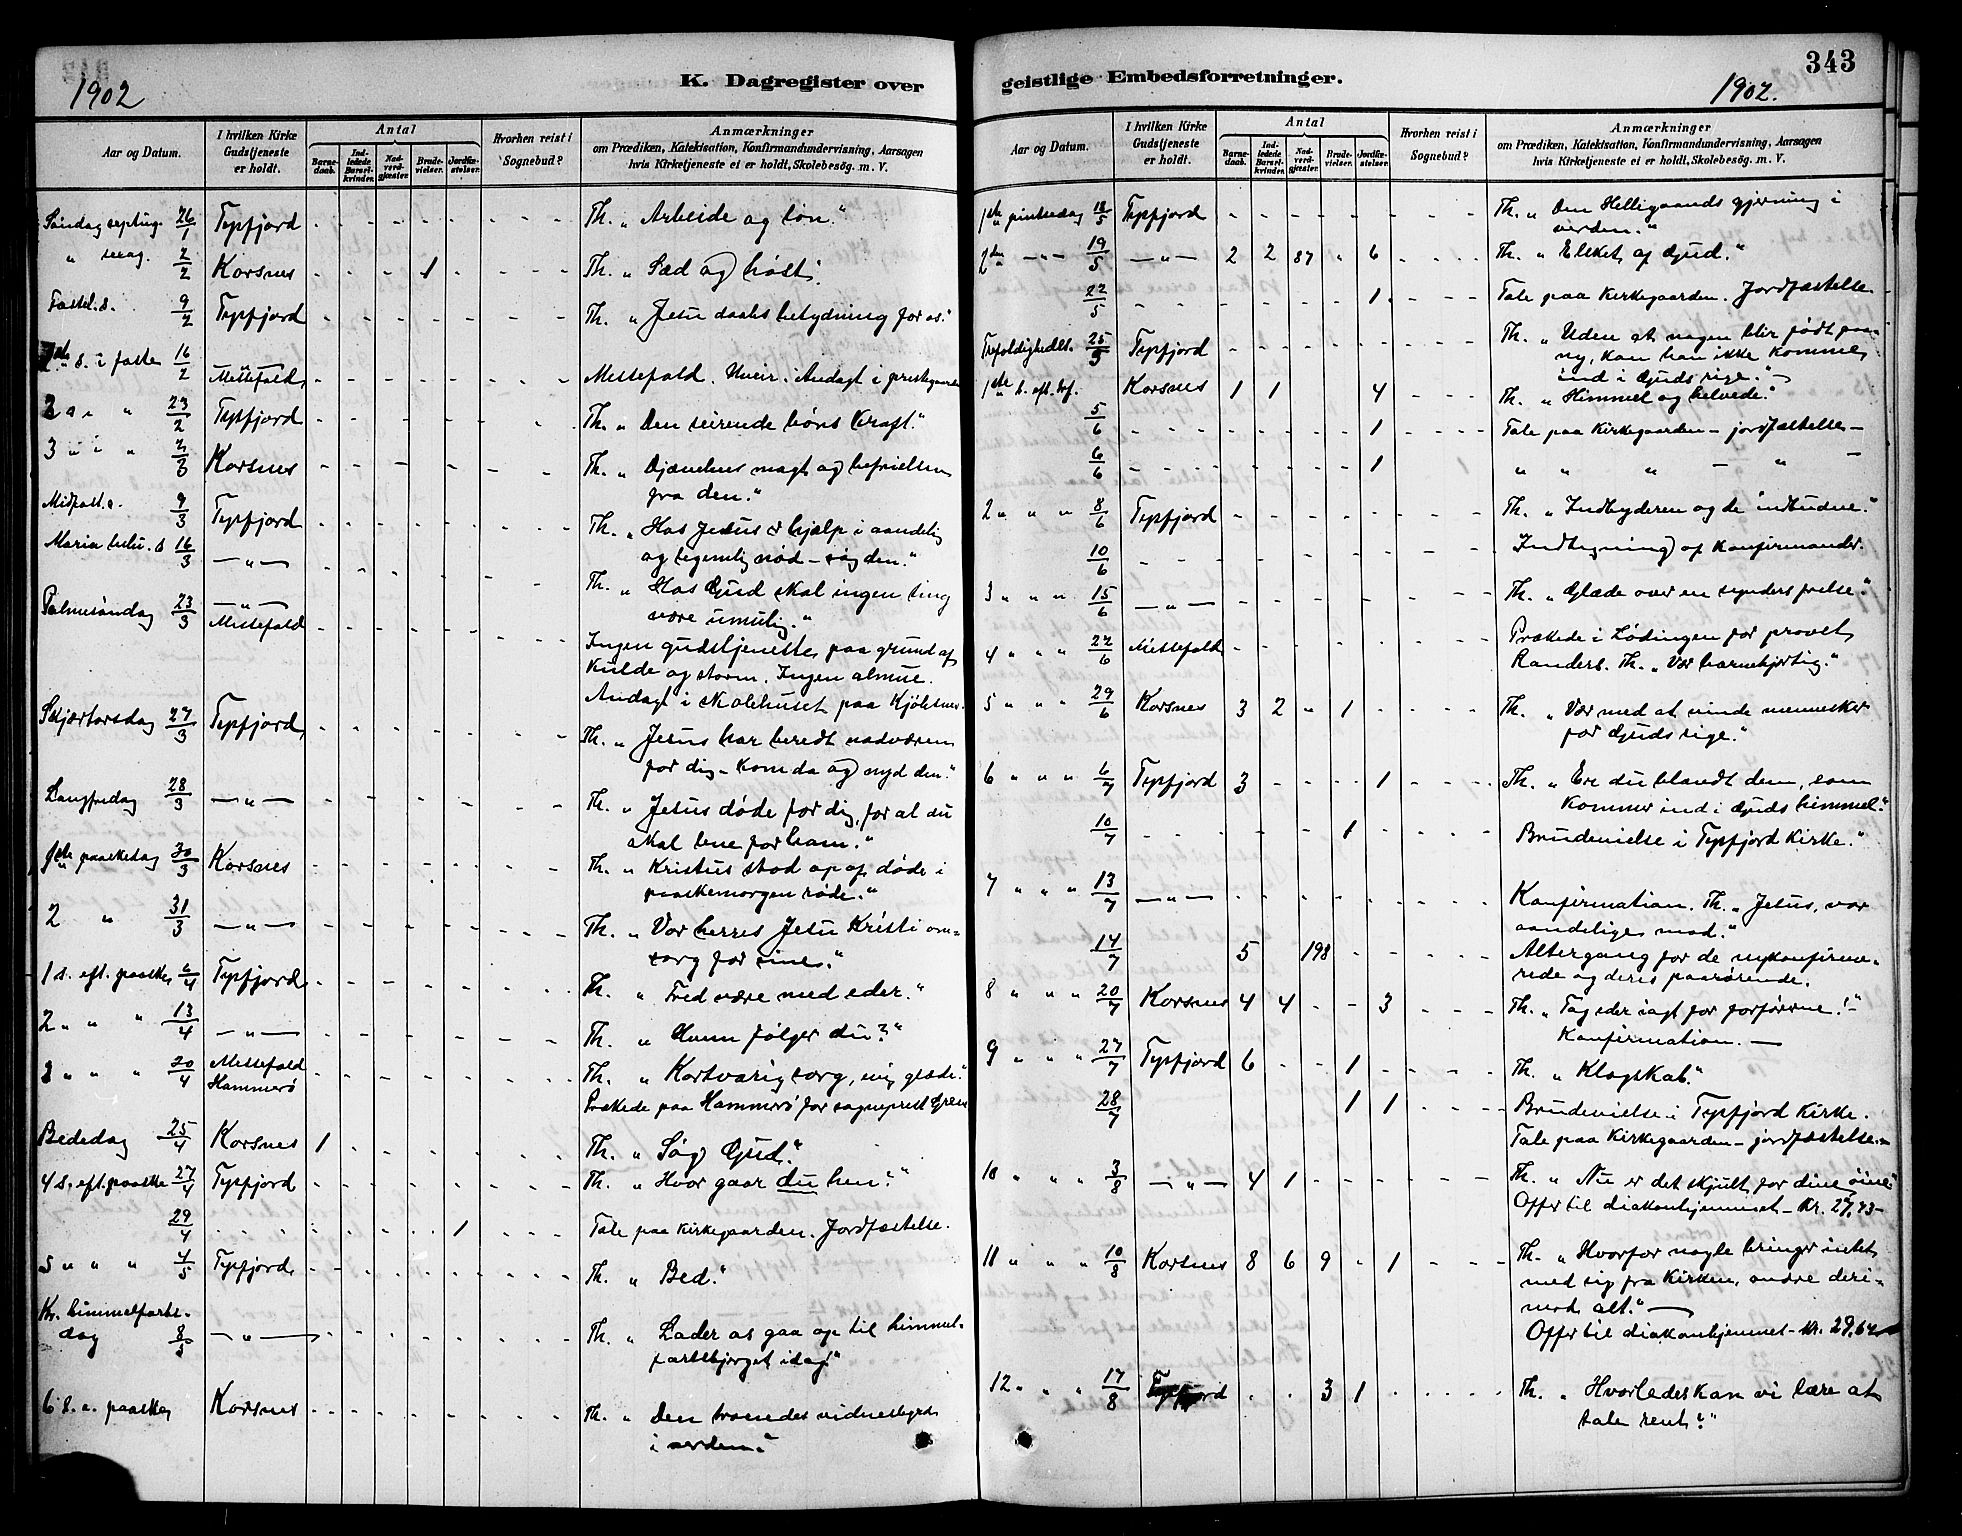 1902
K. Dagregister over
Aar og Datum.
I hvilken Kirke Gudstjeneste er holdt.
Antal
Barnedaab.
Indledede Barselkvinder.
Nadverdgjæster.
Brudevielser.
Jordfæstelser.
Hvorhen reist i Sognebud?
Anmærkninger
om Prædiken, Katekisation, Konfirmandundervisning, Aarsagen
hvis Kirketjeneste ei er holdt, Skolebesög. m. V.
Søndag septug. 26/1 Tysfjord - - - - - - Th. „Arbeide og løn."
" sexag. 2/2 Korsnes - - - 1 - - Th. „Sæd og høst".
Fastel. s. 9/2 Tysfjord - - - - - - Th. „Jesu daabs betydning for os."
1ste s. i faste 16/2 Messefald - - - - - - Messefald. Uveir. Andagt i prestegaarden
2 s. i " 23/2 Tysfjord - - - - - - Th. „Den seirende bøns kraft."
3 " i " 2/3 Korsnes - - - - - - Th. „Djævelens magt og befrielsen
fra den."
Midfast. s. 9/3 Tysfjord - - - - - - Th. „Hos Jesus er hjælp i aandelig
og legemlig nød – søg den."
Maria bebu. s 16/3 — " — - - - - - - Th. „Hos Gud skal ingen ting
være umulig."
Palmesøndag 23/3 — " — Messefald - - - - - - Ingen gudstjeneste paa grund af
kulde og storm. Ingen almue.
Andagt i skolehuset paa Kjölsnes.
Skjærtorsdag 27/3 Tysfjord - - - - - - Th. „Jesus har beredt nadveren
for dig – kom da og nyd den."
Langfredag 28/3 — " — - - - - - - Th. „Jesus døde for dig, for at du
skal leve for ham."
1ste paaskedag 30/3 Korsnes - - - - - - Th. „Kristus stod op af døde i
paaskemorgen røde."
2 " 31/3 — " — - - - - - - Th. „Vor herres Jesu Kristi om-
sorg for sine."
1 s. eft. paaske 6/4 Tysfjord - - - - - - Th. „Fred være med eder."
2 " " " 13/4 — " — - - - - - - Th. „Hvem følger du?"
3 " " " 20/4 Messefald Hammerö - - - - - - Th. „Kortvarig sorg, evig glæde."
Prækede paa Hammerö for sogneprest
Bededag 25/4 Korsnes 1 - - - - - Th. „Søg Gud."
4 s. eft. paaske 27/4 Tysfjord - - - - - - Th. „Hvor gaar du hen?"
29/4 - - - - 1 - Tale paa kirkegaarden. Jordfæstelse.
5 " " " 4/5 Tysfjord - - - - - - Th. „Bed."
Kr. himmelfarts-
dag 8/5 — " — - - - - - - Th. „Lader os gaa op til himmel-
fartsbjerget idag"
6 s. e. paaske Korsnes - - - - - - Th. „Den troendes vidnesbyrd
i verden."
343
geistlige Embedsforretninger.
1902.
Aar og Datum.
I hvilken Kirke Gudstjeneste er holdt.
Antal
Barnedaab.
Indledede Barselkvinder.
Nadverdgjæster.
Brudevielser.
Jordfæstelser.
Hvorhen reist i Sognebud?
Anmærkninger
om Prædiken, Katekisation, Konfirmandundervisning, Aarsagen
hvis Kirketjeneste ei er holdt, Skolebesög. m. V.
1ste pintsedag 18/5 Tysfjord - - - - - - Th. „Den Helligaands gjerning i
verden."
2den — " — 19/5 — " — 2 2 87 " 6 - Th. „Elsket af Gud."
22/5 - - - - 1 - Tale paa kirkegaarden. Jordfæstelse.
Trefoldigheds. 25/5 Tysfjord - - - - - - Th. „Uden at nogen blir født paa
ny, kan han ikke komme
ind i Guds rige."
1ste s. eft. tref. Korsnes 1 1 4 - Th. „Himmel og helvede."
5/6 - - - - 1 - Tale paa kirkegaarden – jordfæstelse –
6/6 - - - - 1 " " " – " –
2 " " " 8/6 Tysfjord - - - - - - Th. „Indbyderen og de indbudne."
10/6 - - - - - - Indtegning af konfirmander.
3 " " " 15/6 — " — - - - - - - Th. „Glæde over en synders frelse."
4 " " " 22/6 Messefald - - - - - - Prækede i Lødingen for provst
Randers. Th. „Vær barmhjertig."
5 " " " 29/6 Korsnes 3 2 " 1 - - Th. „Vær med at vinde mennesker
for Guds rige."
6 " " " 6/7 Tysfjord 3 - - - 1 - Th. „Er du blandt dem, som
kommer ind i Guds himmel."
10/7 - - - 1 - - Brudevielse i Tysfjord kirke."
7 " " " 13/7 — " — - - - - - - Konfirmation. Th. „Jesus, vor
aandelige mad."
14/7 5 198 - - - Altergang for de nykonfirme-
rede og deres paarørende.
8 " " " 20/7 Korsnes 4 4 - - 3 - Th. „Tag eder iagt for forførerne!"
Konfirmation. —
9 " " " 27/7 Tysfjord 6 - - 1 - - Th. „Klogskab."
28/7 1 1 - Brudevielse i Tysfjord kirke.
Tale paa kirkegaarden – jordfæstelse. –
10 " " " 3/8 — " — 4 1 - - - - Th. „Nu er det skjult for dine øine"
Offer til diakonhjemmet – kr. 27,73 –
11 " " " 10/8 Korsnes 8 6 9 " 1 - Th. „Hvorfor nogle bringer intet
med sig fra kirken, andre deri-
mod alt." —
Offer til diakonhjemmet – kr. 29,64
12 " " " 17/8 Tysfjord - - 3 1 - - Th. „Hvorledes kan vi lære at
tale rent?"